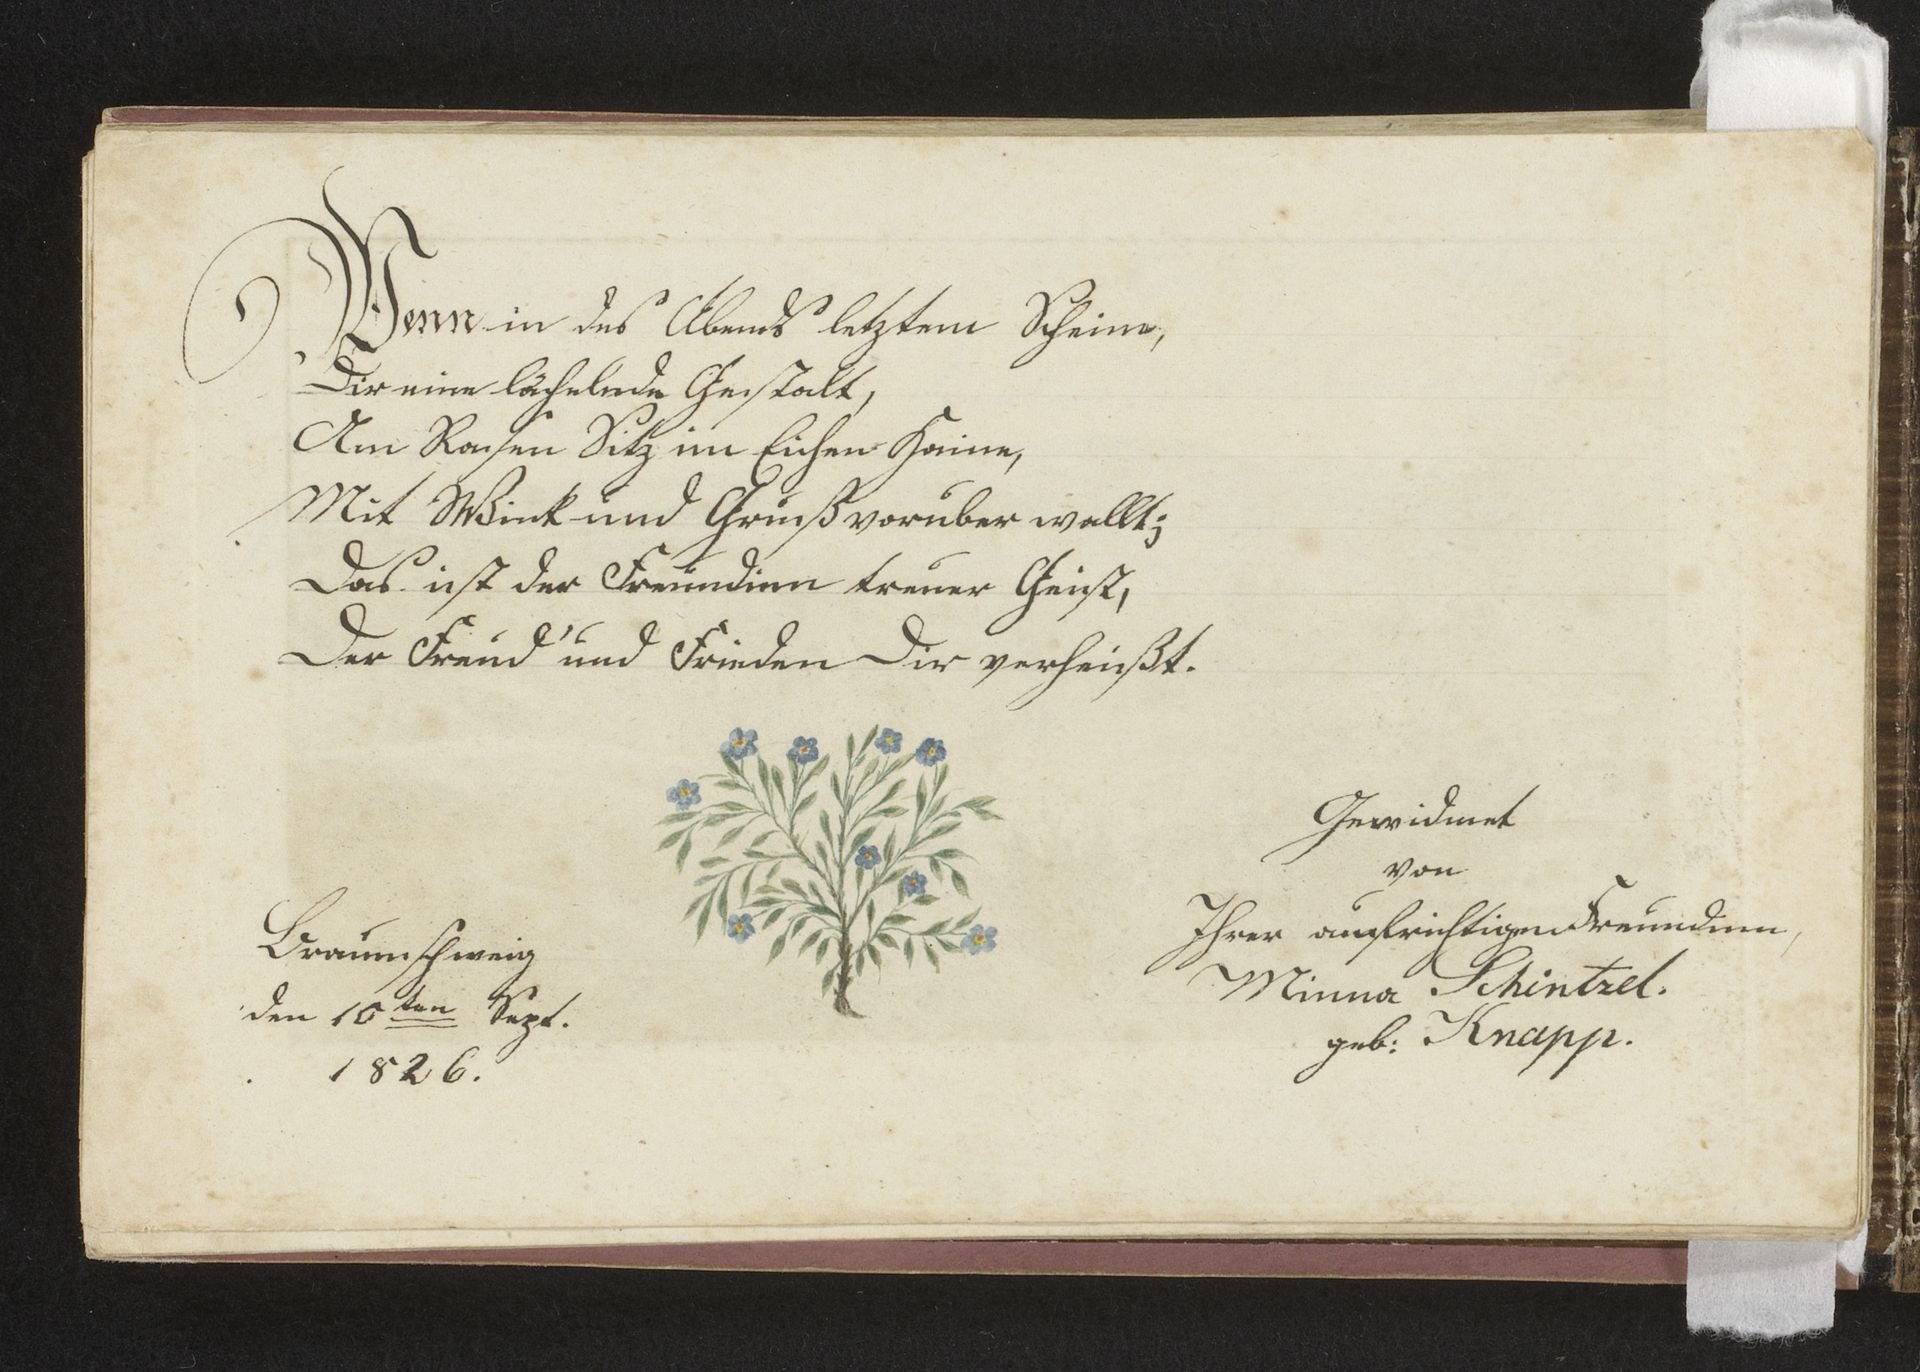 Wenn in des Abends letztem Scheine,
Dir eine lächelnde Gestalt,
Am Rasen Sitz im Eichen Haine,
Mit Wink und Gruß vorüber wallt;
Das ist der Freundinn treuer Geist,
Der Freud' und Frieden Dir verheißt.
Gewidmet
von
Ihrer aufrichtigen Freundinn,
Minna Schintzel.
geb: Knapp.
Braunschweig
den 10ten Sept.
1826.